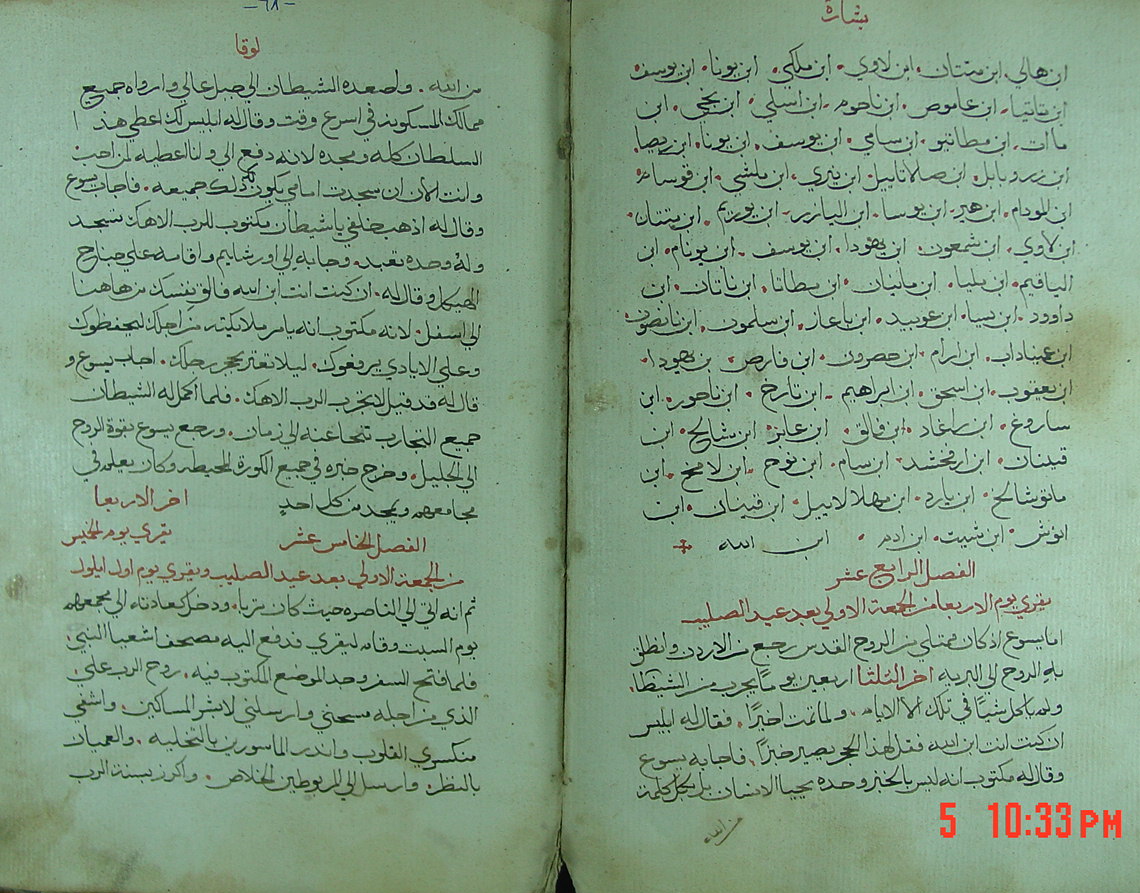 بشارة
ابن هالي. ابن متتان. ابن لاوي. ابن ملكي. ابن يونا. ابن يوسف
ابن تاتيا. ابن عاموص. ابن ناحوم. ابن اسلي. ابن نجي. ابن
ماات. ابن مطاتيو. ابن سامي. ابن يوسف. ابن يونا. ابن ريصا
ابن زروبابل. ابن صلاتاييل. ابن نيري. ابن ملشي. ابن قوسام
ابن المودام. ابن هير. ابن يوسا. ابن اليازر. ابن يوريم. ابن متتان
ابن لاوي. ابن شمعون. ابن يهودا. ابن يوسف. ابن يونام. ابن
الياقيم. ابن مليا. ابن ماينان. ابن مطاتا. ابن ناتان. ابن
داوود. ابن يسا. ابن عوبيد. ابن باعاز. ابن سلمون. ابن ناصون
ابن عميناداب. ابن ارام. ابن حصرون. ابن فارص. بن يهودا.
ابن يعقوب. ابن اسحق. ابن ابراهيم. ابن تارخ. ابن ناحور. ابن
ساروغ. ابن راغاد. بن فالق. ابن عابر. ابن شالخ. ابن
قينان. ابن ارفخشد. ابن سام. ابن نوح. ابن لامخ. ابن
ماتوشالخ. ابن يارد. ابن مهلالاييل. ابن قينان. ابن
انوش. ابن شيت. ابن ادم. ابن الله
الفصل الرابع عشر
يقري يوم الاربعا من الجمعة الاولي بعد عيد الصليب
اما يسوع اذ كان ممتلي من الروح القدس رجع من الاردن وانطلق
به الروح الي البريه اخر الثلثا اربعين يوما يجرب من الشيطان
ولم ياكل شيا في تلك الايام. ولما تمت اخيرا. فقال له ابليس
ان كنت انت ابن الله فقل لهذا الحجر يصير خبزا. فاجابه يسوع
وقال له مكتوب انه ليس بالخبز وحده يحيا الانسان بل بكل كلمة
من الله
-٦٨-
لوقا
من الله. واصعده الشيطان الي جبل عالي وارواه جميع
ممالك المسكونه في اسرع وقت وقال له ابليس لك اعطي هذا
السلطان كله ومجده لانه دفع الي وانا اعطيه لمن احب
وانت الان ان سجدت امامي يكون لك جميعه. فاجاب يسوع
وقال له اذهب خلفي يا شيطان مكتوب للرب الاهك تسجد
وله وحده تعبد. وجابه الي اورشليم واقامه علي جناح
الهيكل وقال له. ان كنت انت ابن الله فالق نفسك من هاهنا
الي اسفل. لانه مكتوب انه يامر ملايكته من اجلك ليحفظوك
وعلي الايادي يرفعوك. ليلا تعتر بحجر رجلك. اجاب يسوع و
قال له قد قيل لا تجرب الرب الاهك. فلما اكمل له الشيطان
جميع التجارب تنحا عنه الي زمان. ورجع يسوع بقوة الروح
الي الجليل. وخرج خبره في جميع الكورة المحيطه وكان يعلم في
مجامعهم ويمجد من كل احد اخر الاربعا
الفصل الخامس عشر يقري يوم الخميس
من الجمعة الاولي بعد عيد الصليب ويقري يوم اول ايلول
ثم انه اتي الي الناصره حيث كان تربا. ودخل كعادته الي مجمعهم
يوم السبت وقام ليقري فدفع اليه مصحف اشعيا النبي.
فلما فتح السفر وجد الموضع المكتوب فيه. روح الرب علي
الذي من اجله مسحني وارسلني لابشر المساكين. واشفي
منكسري القلوب واندر الماسورين بالتخليه. والعميان
بالنظر. وارسل الي المربوطين الخلاص. واكرز بسنة الرب
5 10:33 PM